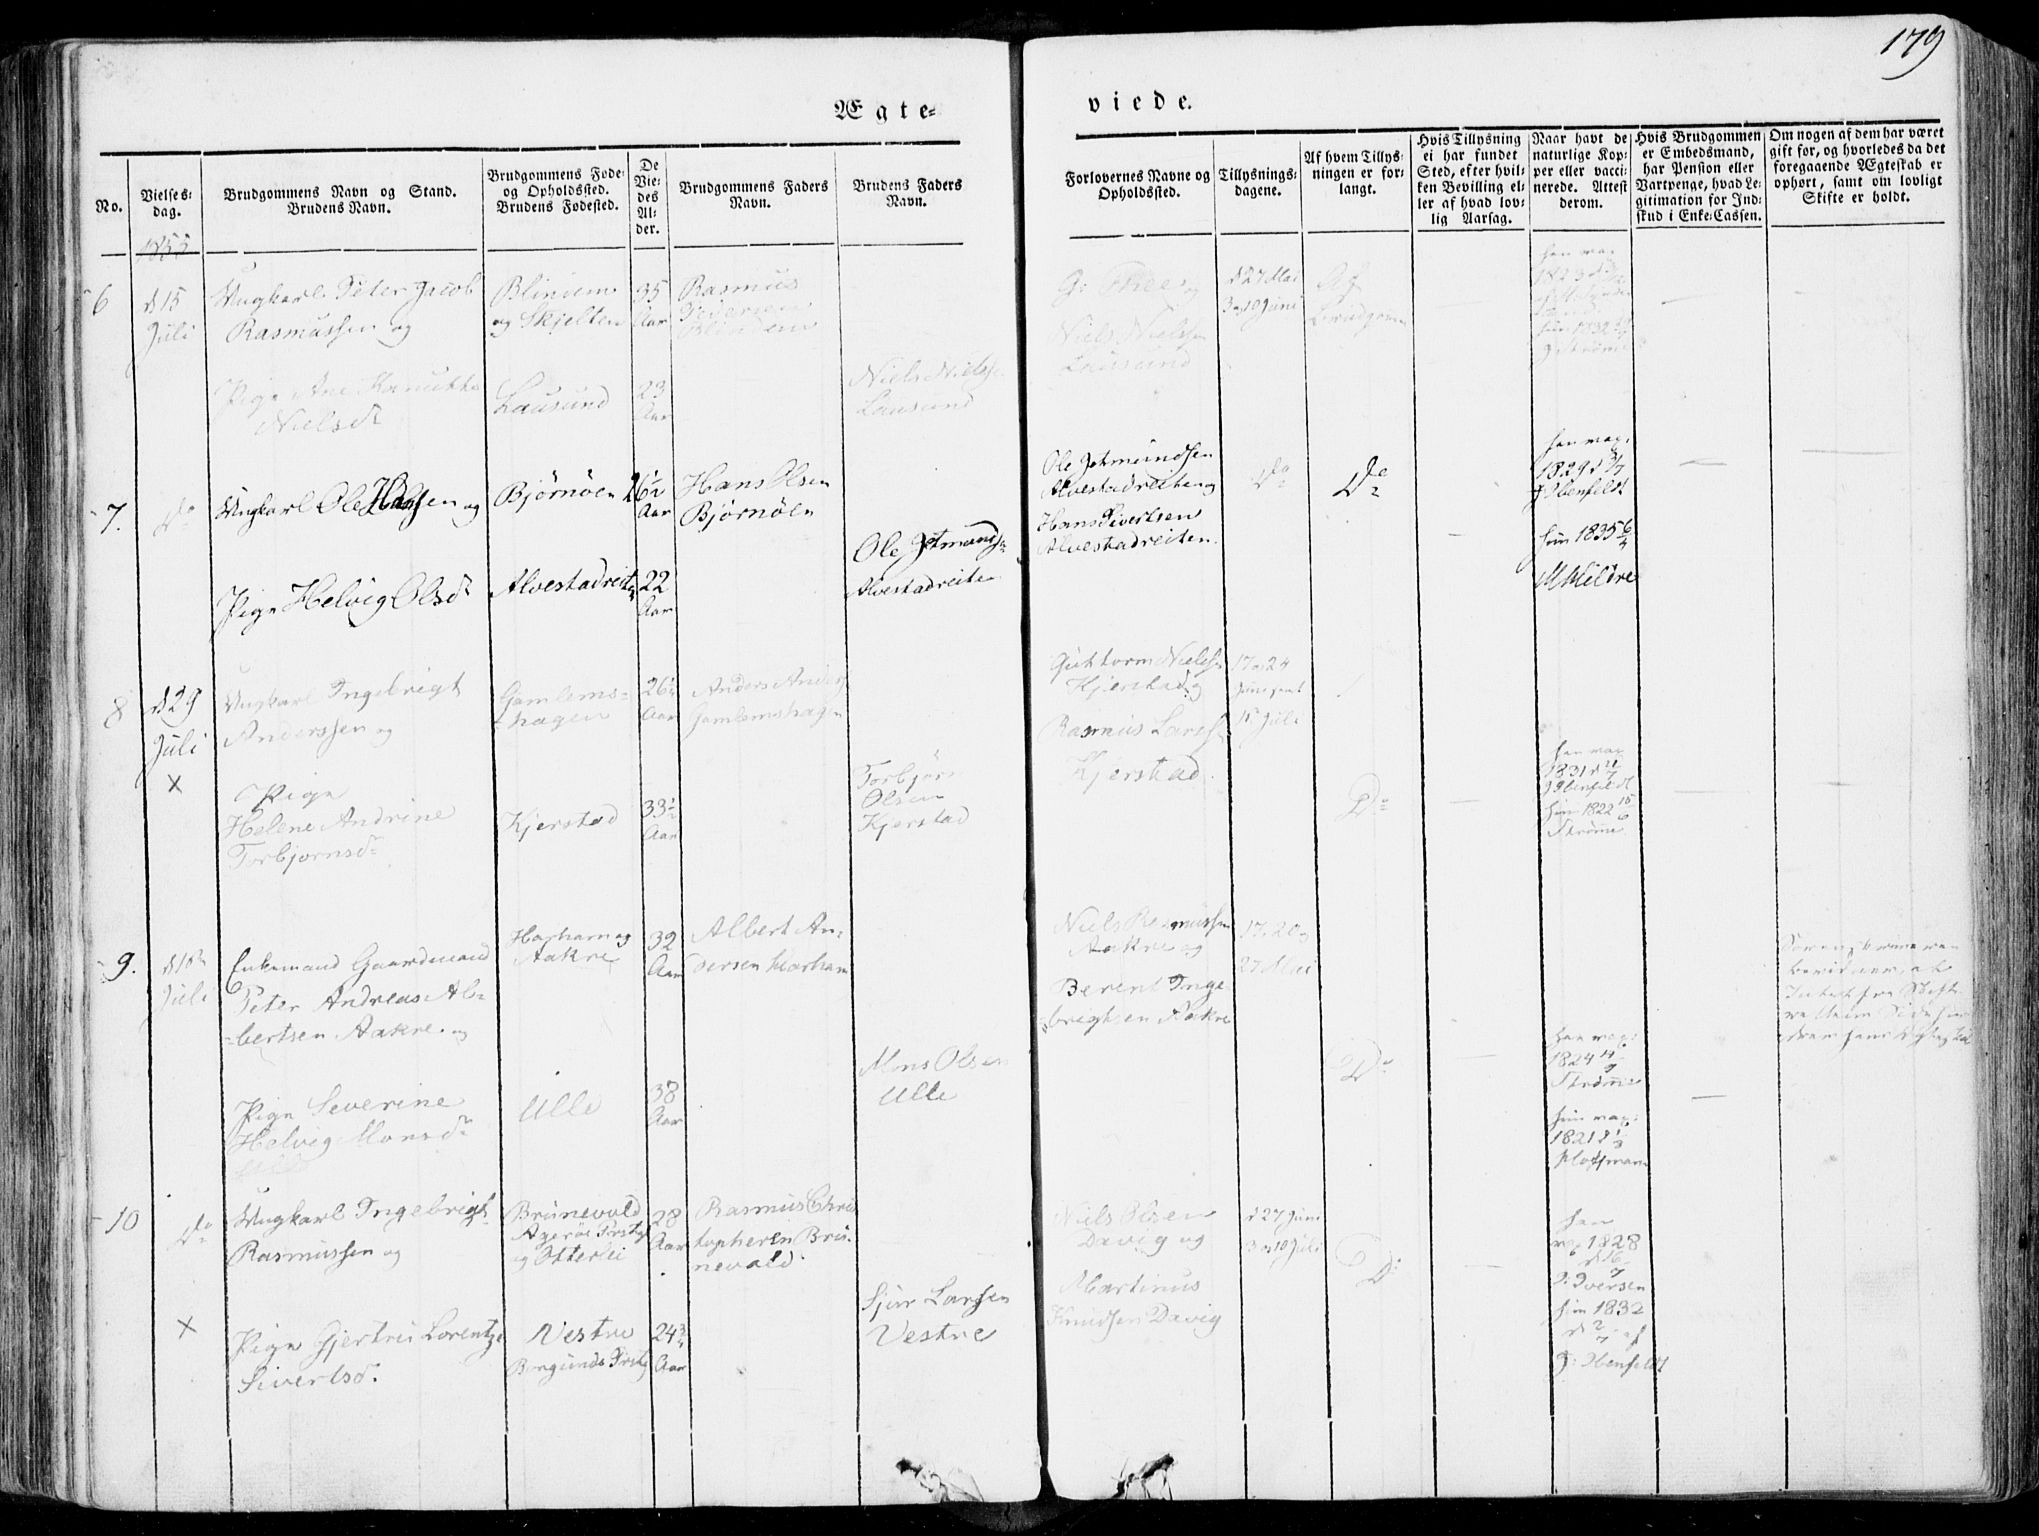 179
Ægte-
viede.
No.
Vielses-
dag.
Brudgommens Navn og Stand.
Brudens Navn.
Brudgommens Føde-
og Opholdssted.
Brudens Fødested.
De
Vie-
des
Al-
der.
Brudgommens Faders
Navn.
Brudens Faders
Navn.
Forlovernes Navne og
Opholdssted.
Tillysnings-
dagene.
Af hvem Tillys-
ningen er for-
langt.
Hvis Tillysning
ei har fundet
Sted, efter hvil-
ken Bevilling el-
ler af hvad lov-
lig Aarsag.
Naar havt de
naturlige Kop-
per eller vacci-
nerede. Attest
derom.
Hvis Brudgommen
er Embedsmand,
har Pension eller
Vartpenge, hvad Le-
gitimation for Ind-
skud i Enke-Cassen.
Om nogen af dem har været
gift før, og hvorledes da det
foregaaende Ægteskab er
ophørt, samt om lovligt
Skifte er holdt.
1855
6
d 15
Juli
Ungkarl Peter Jacob
Rasmussen og
Blindem
og Skjelten
35
Aar
Rasmus
Pedersen
Blindem
G:
Niels Nielsen
Lausund
d 27 Mai
3 og 10 Juni
Af
Brudgom
han vac
1823
hun 1832
Strøm
Pige Ane
Nielsdr
Lausund
23
Aar
Niels Nielse
Lausund
7.
Do
Ungkarl Ole Hansen og
Bjørnøen
26½
Aar
Hans Olsen
Bjørnøen
Ole Jetmundsen
Alvestadreiten og
Hans Sivertsen
Alvestadreiten.
Do
Do
han vac.
1829 d
J Ibenfeldt
hun 1835 6/4
M Mildre
Pige Helvig Olsdr
Alvestadreite
22
Aar
Ole Jetmunds
Alvestadreiten
8
d 29
Juli
×
Ungkarl Ingebrigt
Anderssen og
Gamlems-
hagen
26½
Aar
Anders Anders
Gamlemshagen
Guttorm Nielsen
Kjerstad og
Rasmus Larss
Kjerstad.
17 og 24
Juni samt
15 Juli
Do
han vac
1831 d 11/7
J Ibenfeldt
hun 1822 15/6
Strømme
Pige
Helene Andrine
Torbjørnsdr
Kjerstad
33½
Aar
Torbjør
Olsen
Kjerstad
9.
Juli
Enkemand Gaardmand
Peter Andreas Al-
bertsen Aakre og
Harham og
Aakre
32
Aar
Albert An-
dersen Harham
Niels Rasmussen
Aakre og
Berent Inge-
brigtsen Aakre
17. 20 og
27 Mai
Do
han vac.
1824
Strømme
hun vac.
1821
Hoffmann
Pige Severine
Helvig Monsdr
Ulle
Ulle
38
Aar
Mons Olsen
Ulle
10
Do
×
Ungkarl Ingebrigt
Rasmussen og
Brunevold
Agerøe Prstgj
og Otterlei
28
Aar
Rasmus Chris
tophersen Bru-
nevold.
Niels Olsen
Davig og
Martinus
Knudsen Davig
d 27 Juni
3 og 10 Juli
Do
han
vac 1828
d 16/7
Iversen
hun 1832
d 2/7 af
J: Ibenfeldt
Pige Gjertrui Lorentze
Sivertsdr.
Vestre
Borgunds Prstgj
24¾
Aar
Sjur Larsen
Vestre